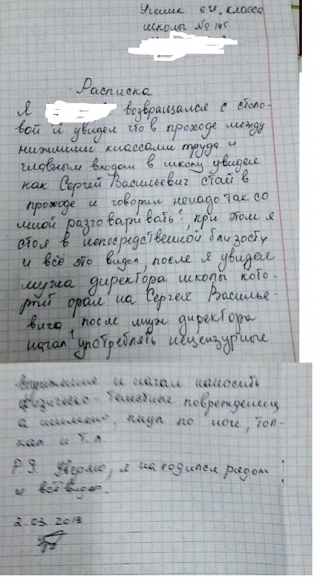 Ученик 6 "И" класса
школы № 145
Расписка
Я возвращался с столо-
вой и увидел что в проходе между
нижними классами труда и
главным входом в школу увидел
как Сергей Васильевич стоит в
проходе и говорит "ненадо так со
мной разговаривать", при этом я
стоя в непосредственной близости
и всё это видел, после я увидел
мужа директора школы кото-
рый орал на Сергея Василье-
вича, после муж директора
начал употреблять нецензурные
выражения и начал наносить
физическо-телестные повреждения
а именно, пнул по ноге, тол-
кал и т.п
Р.S. Уверяю, я находился рядом
и всё видел.
2.03 2018